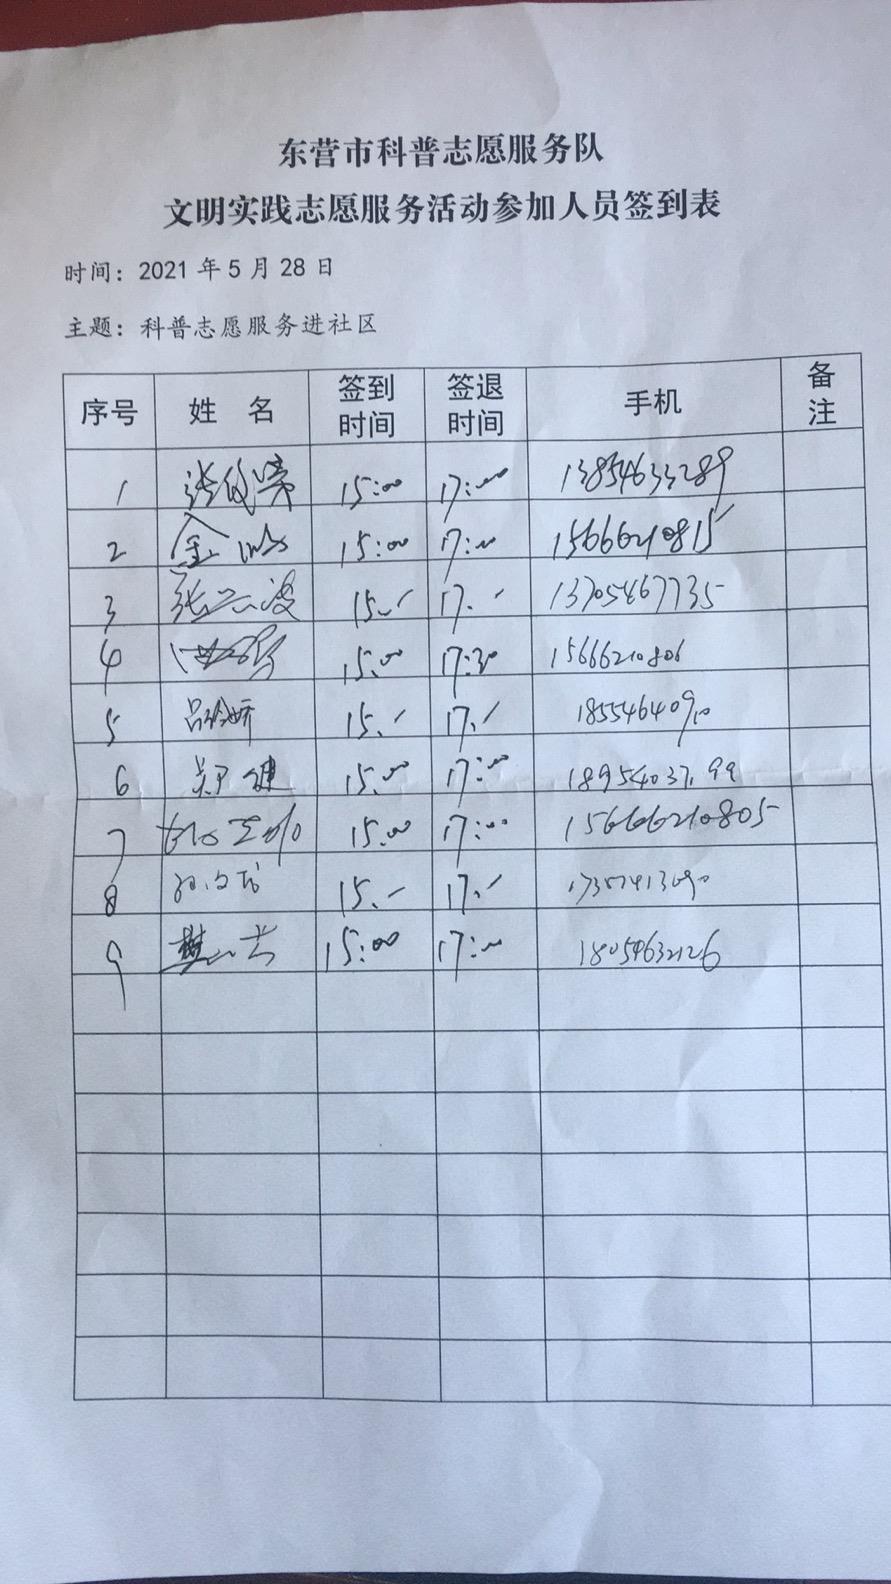 东营市科普志愿服务队
文明实践志愿服务活动参加人员签到表
时间：2021年5月28日
主题：科普志愿服务进社区
序号 姓 名 签到时间 签退时间 手机 备注
1 张 15:00 17:00 13854633289
2 金 15:00 17:00 15666210815
3 张 波 15. 17. 13705467735
4 15:00 17:30 15666210806
5 吕 娇 15. 17. 18554640910
6 健 15:00 17:00
7 15:00 17:00 15666210805
8 15. 17.
9 樊 15:00 17:00 18054632126